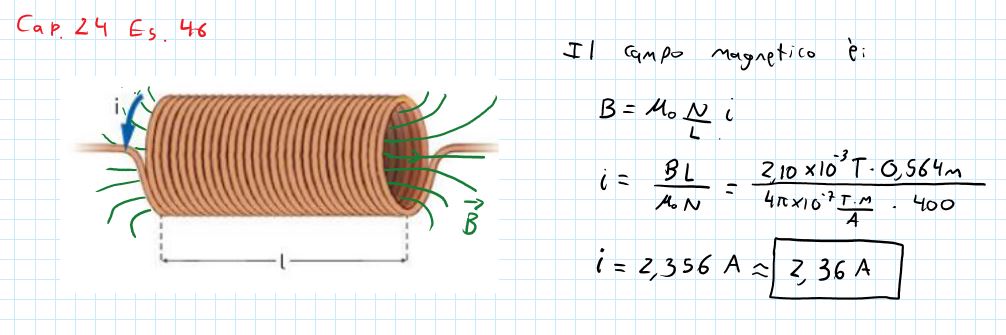 Cap. 24 Es. 46
i
l
B
Il campo magnetico è:
B = μ₀ N/L i
i = BL/μ₀N = 2,10 × 10⁻³ T · 0,564 m / 4π × 10⁻⁷ T·m/A · 400
i = 2,356 A ≈ 2,36 A